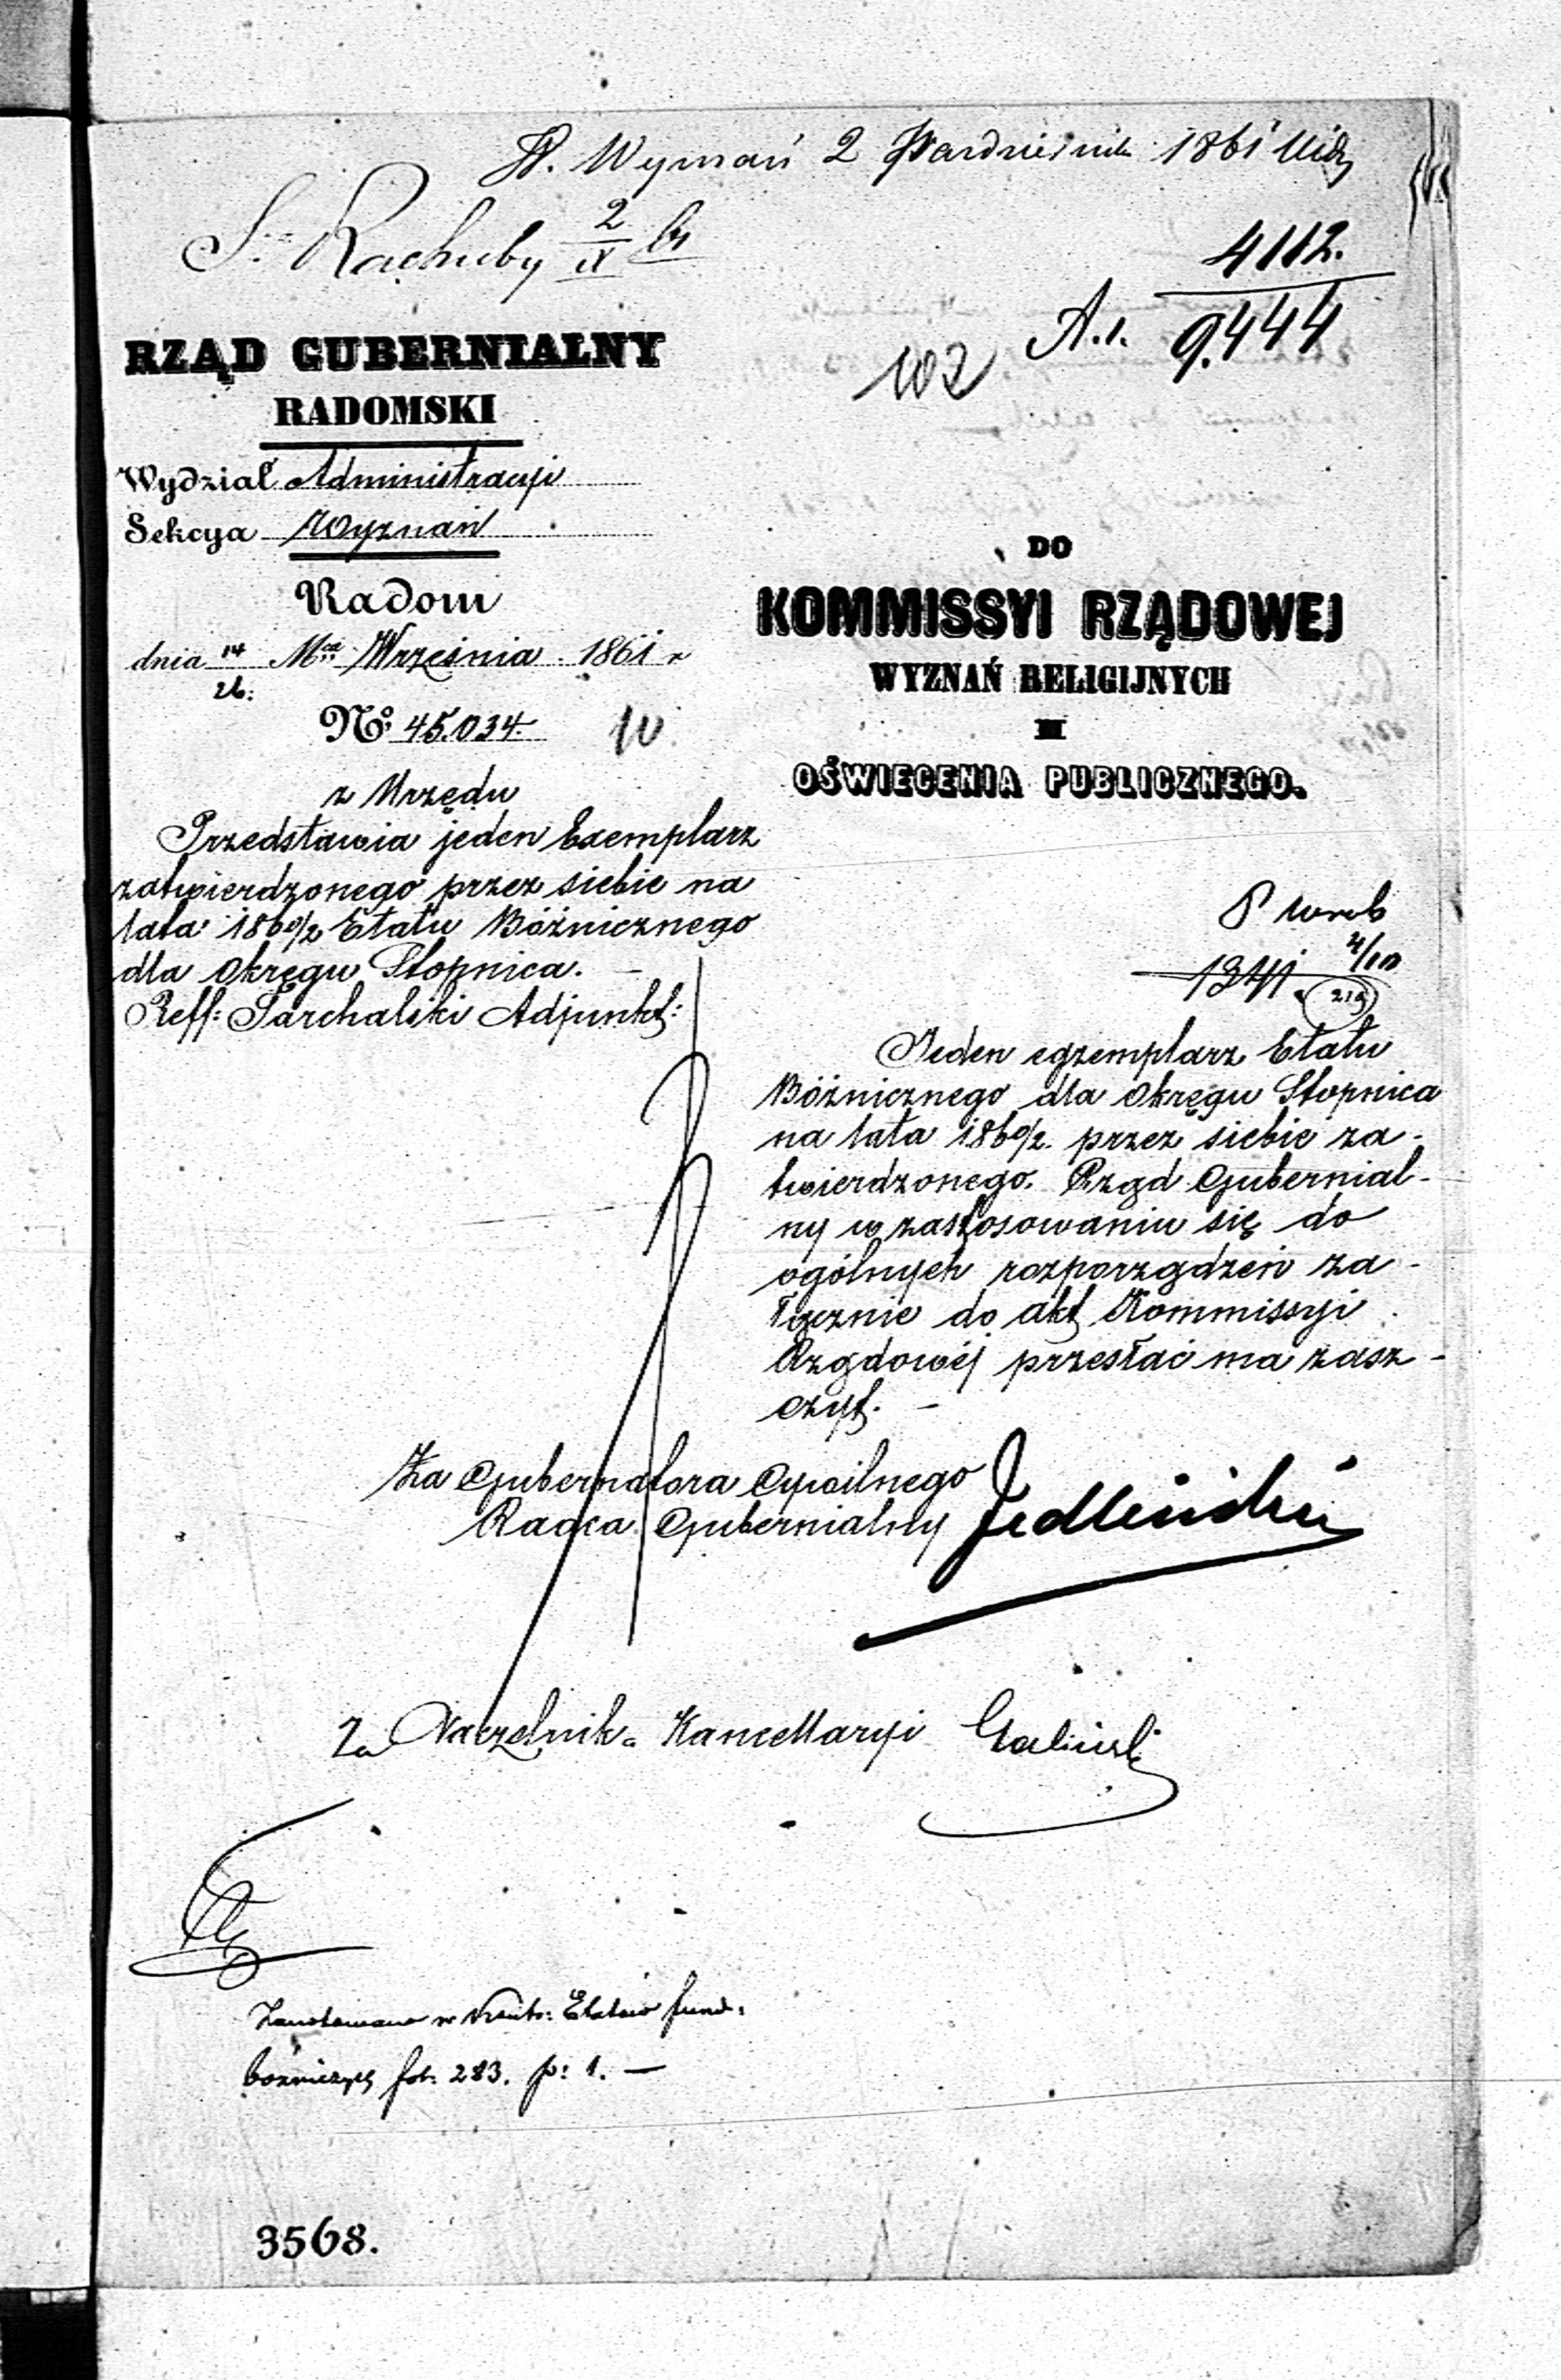 W. Wyznań 2 Października 1861
S. Rachuby 2/IX
4112.
A.1. 9.444
102
RZĄD GUBERNIALNY
RADOMSKI
Wydział Administracyi
Sekcya Wyznań
Radom
dnia 14/26: Mca Września 1861 r
No: 45.034.
z Urzędu
Przedstawia jeden Exemplarz
zatwierdzonego przez siebie na
lata 1860/2 Etatu Bóżnicznego
dla Okręgu Stopnica. –
Reff: Tarchalski Adjunkt:
DO
KOMMISSYI RZĄDOWEJ
WYZNAŃ RELIGIJNYCH
I
OŚWIECENIA PUBLICZNEGO.
4/10
1341.
Jeden egzemplarz Etatu
Bóżnicznego dla Okręgu Stopnica
na lata 1860/2. przez siebie za-
twierdzonego. Rząd Gubernial-
ny w zastosowaniu się do
ogólnych rozporządzeń za-
łącznie do akt Kommissyi
Rządowéj przesłać ma zasz-
czyt. –
Za Gubernatora Cywilnego
Radca Gubernialny Jedliński
Za Naczelnika Kancellaryi
Zanotowano w Kontr: Etatów fund:
bóżniczych fol: 283. p: 1. –
3568.